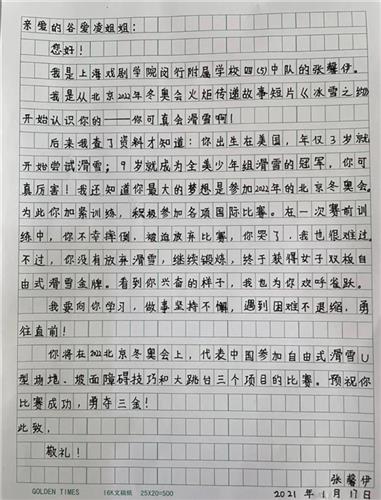 亲爱的谷爱凌姐姐：
您好！
我是上海戏剧学院闵行附属学校四(5)中队的张馨伊。
我是从北京2022年冬奥会火炬传递故事短片《冰雪之约》
开始认识你的——你可真会滑雪啊！
后来我查了资料才知道：你出生在美国，年仅3岁就
开始尝试滑雪；9岁就成为全美少年组滑雪的冠军，你可
真厉害！我还知道你最大的梦想是参加2022年的北京冬奥会。
为此你加紧训练，积极参加各项国际比赛。在一次赛前训
练中，你不幸摔倒，被迫放弃比赛，你哭了，我也很难过。
不过，你没有放弃滑雪，继续锻炼，终于获得女子双板自
由式滑雪金牌。看到你兴奋的样子，我也为你欢呼雀跃。
我要向你学习，做事坚持不懈，遇到困难不退缩，勇
往直前！
你将在2022北京冬奥会上，代表中国参加自由式滑雪U
型场地、坡面障碍技巧和大跳台三个项目的比赛。预祝你
比赛成功，勇夺三金！
此致，
敬礼！
张馨伊
2021年1月17日
GOLDEN TIMES 16K文稿纸 25X20=500